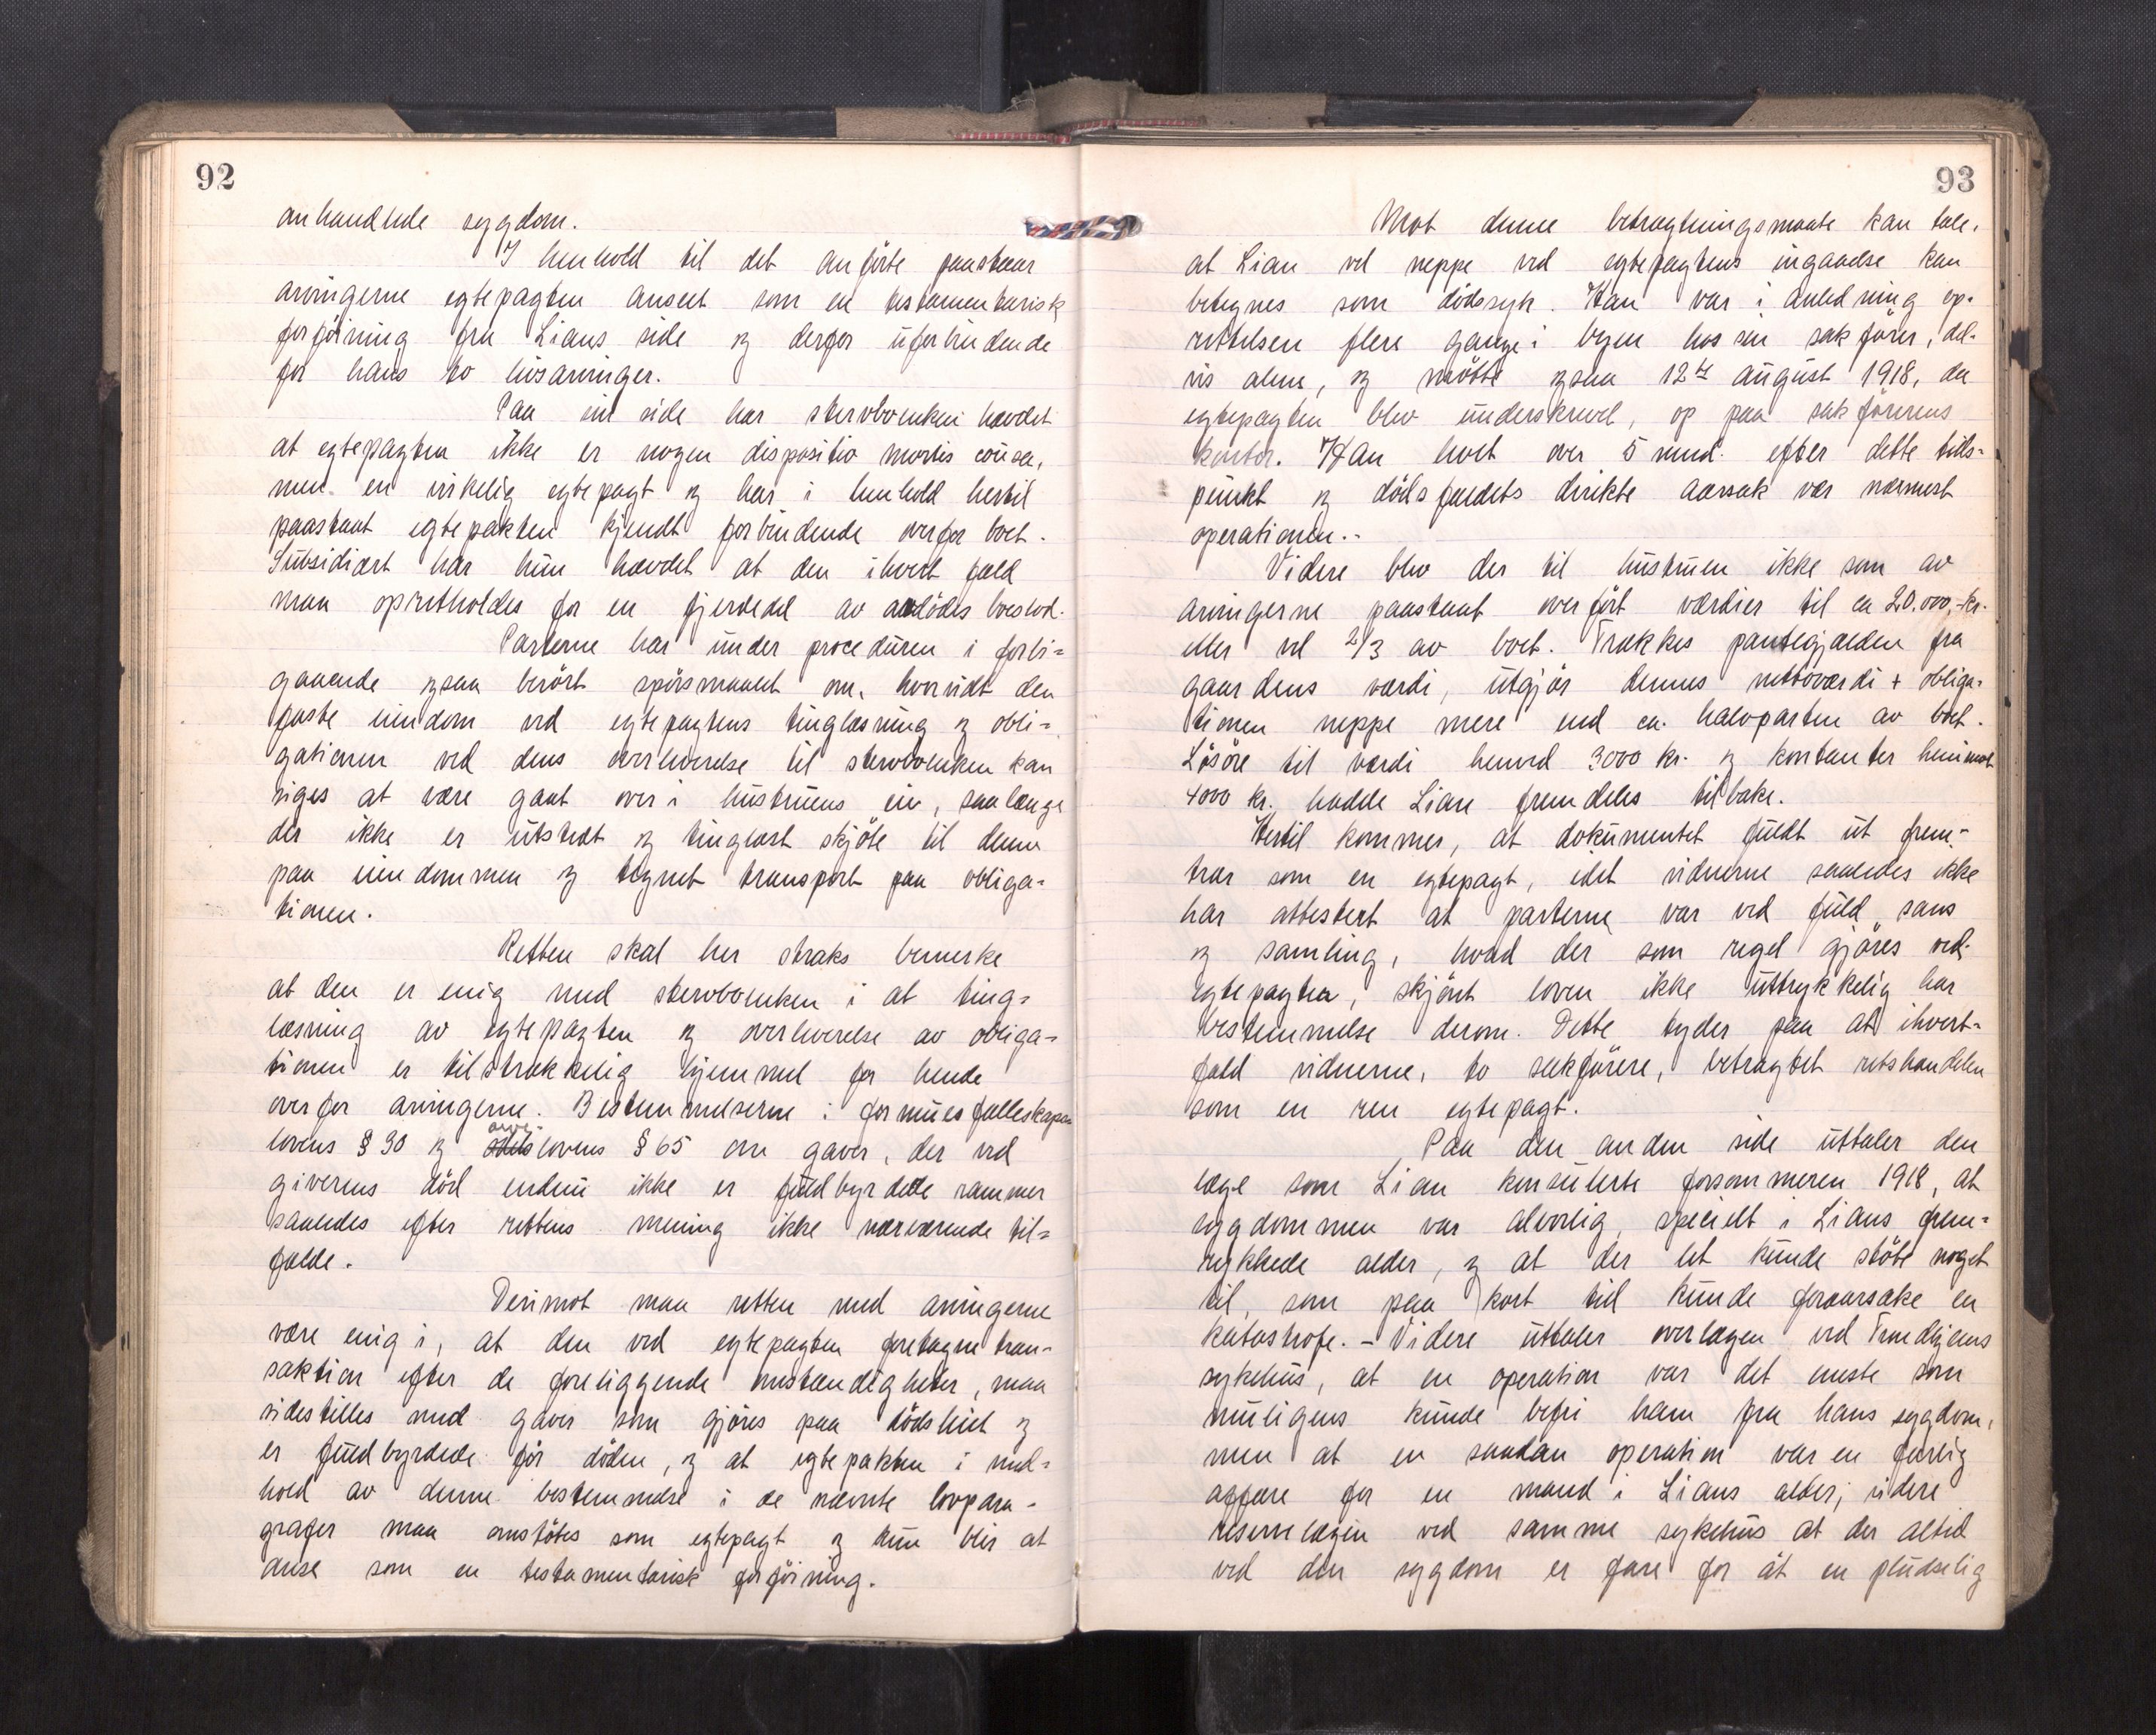 92
anhandlede sygdom.
I henhold til det anførte paastaar
arvingerne egtepagten anseet som en testamentarisk
forføining fra Lians side og derfor uforbindende
for hans to livsarvinger.
Paa sin side har stervboenken hævdet
at egtepagten ikke er nogen dispositio mortis causa,
men en virkelig egtepagt og har i henhold hertil
paastaat egtepakten kjendt forbindende overfor boet.
Subsidiært har hun hævdet at den ihvert fald
maa opretholdes for en fjerdedel av avdødes boeslod.
Parterne har under proceduren i forbi-
gaaende ogsaa berørt spørsmaalet om, hvorvidt den
faste eiendom ved egtepagtens tinglæsning og obli-
gationen ved dens overleverelse til stervboenken kan
siges at være gaat over i hustruens eie, saalænge
der ikke er utstedt og tinglæst skjøte til denne
paa eiendommen og tegnet transport paa obliga-
tionen.
Retten skal her straks bemerke
at den er enig med stervboenken i at ting-
læsning av egtepagten og overleverelse av obliga-
tionen er tilstrækkelig hjemmel for hende
overfor arvingerne. Bestemmelserne i formuesfælleskaps
lovens § 30 og arve-lovens § 65 om gaver, der ved
giverens død endnu ikke er fuldbyrdede rammer
saaledes efter rettens mening ikke nærværende til-
fælde.
Derimot maa retten med arvingerne
være enig i, at den ved egtepagten foretagne tran-
saktion efter de foreliggende omstændigheter, maa
sidestilles med gaver som gjøres paa dødsleiet og
er fuldbyrdede før døden, og at egtepakten i med-
hold av denne bestemmelse i de nævnte lovpara-
grafer maa omstøtes som egtepagt og kun blir at
anse som en testamentarisk forføining.
93
Mot denne betragtningsmaate kan tale,
at Lian vel neppe ved egtepagtens ingaaelse kan
betegnes som dødssyk. Han var i anledning op-
rettelsen flere gange i byen hos sin sakfører, del-
vis alene, og møtte ogsaa 12te august 1918, da
egtepagten blev underskrevet, op paa sakførerens
kontor. Han levet over 5 mnd. efter dette tids-
punkt og dødsfaldets direkte aarsak var nærmest
operationen.-
Videre blev der til hustruen ikke som av
arvingerne paastaat overført værdier til ca 20.000,- kr.
eller vel 2/3 av boet. Trækkes pantegjælden fra
gaardens værdi, utgjør dennes nettoværdi + obliga-
tionen neppe mere end ca. halvparten av boet.
Løsøre til værdi henved 3000 kr. og kontanter henimot
4000 kr. hadde Lian fremdeles tilbake.
Hertil kommer, at dokumentet fuldt ut frem-
trær som en egtepagt, idet vidnerne saaledes ikke
har attestert at parterne var ved fuld sans
og samling, hvad der som regel gjøres ved
egtepagter, skjønt loven ikke uttrykkelig har
bestemmelse derom. Dette tyder paa at ihvert-
fald vidnerne, to sakførere, betragtet retshandelen
som en ren egtepagt.
Paa den anden side uttaler den
læge som Lian konsulerte forsommeren 1918, at
sygdommen var alvorlig, specielt i Lians frem-
rykkede alder, og at der let kunde støte noget
til, som paa kort tid kunde foraarsake en
katastrofe. - Videre uttaler overlægen ved Trondhjems
sykehus, at en operation var det eneste som
muligens kunde befri ham fra hans sygdom,
men at en saadan operation var en farlig
affære for en mand i Lians alder; videre
reservelægen ved samme sykehus at der altid
ved den sygdom er fare for at en pludselig